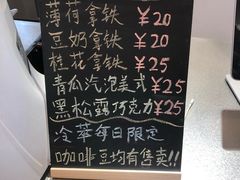 薄荷拿铁 ¥20
豆奶拿铁 ¥20
桂花拿铁 ¥25
青瓜汽泡美式 ¥25
黑松露巧克力 ¥25
冷萃每日限定
咖啡豆均有售卖!!